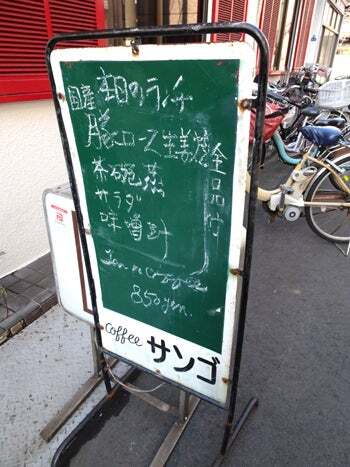 本日のランチ
国産
豚ロース生姜焼
茶碗蒸
サラダ
味噌汁
全品付
850yen.
coffee サンゴ